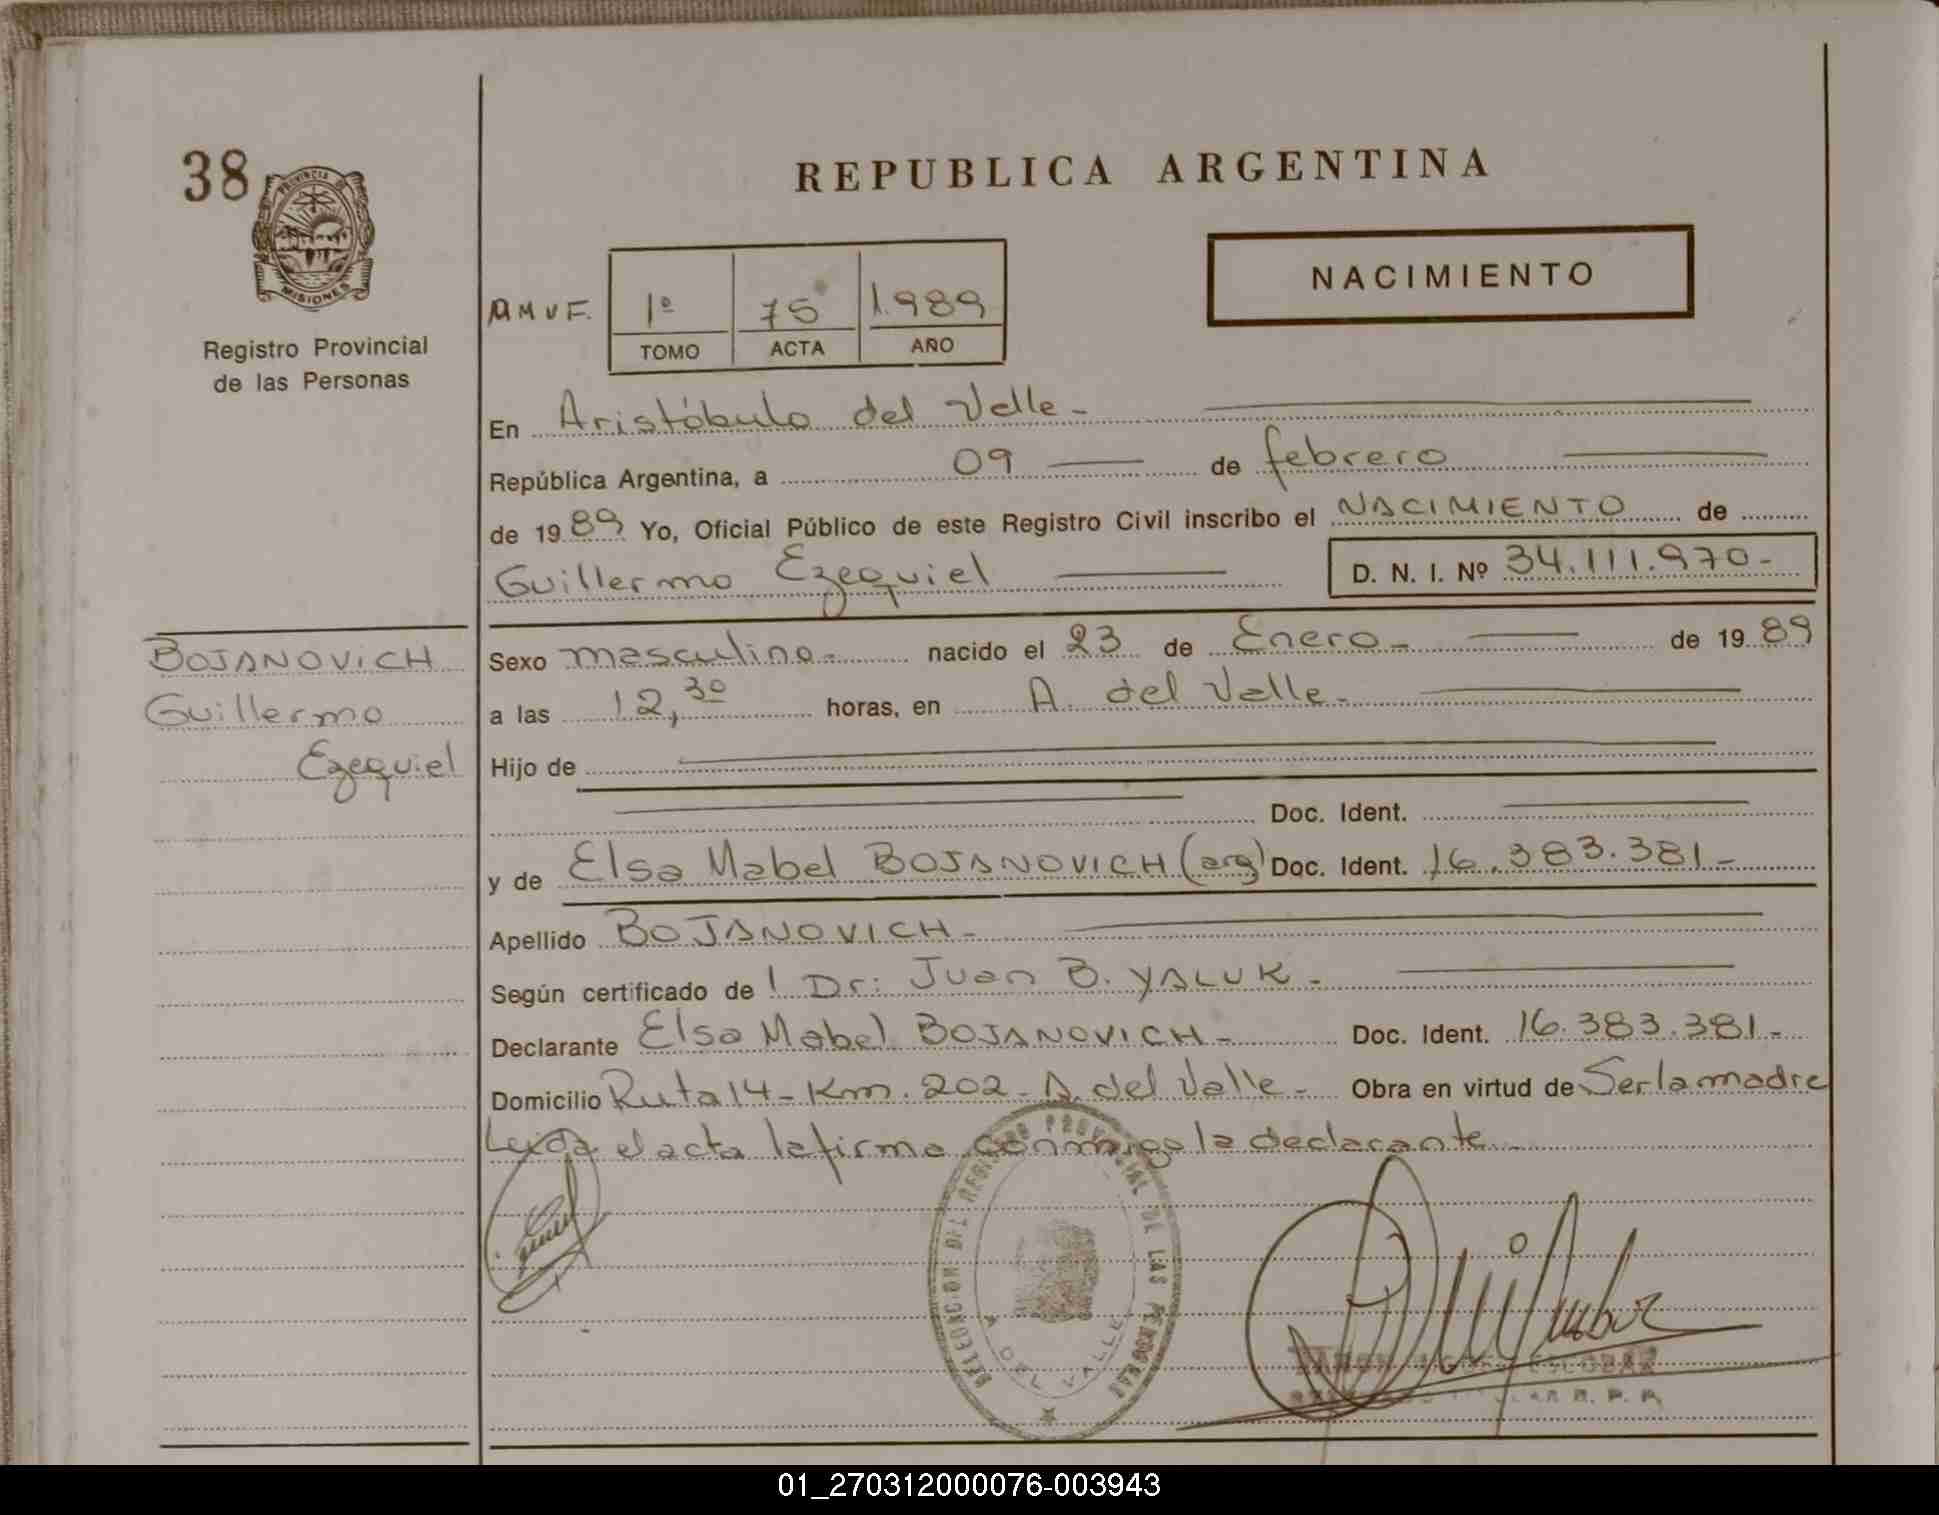 38
PROVINCIA DE
MISIONES
Registro Provincial
de las Personas
REPUBLICA ARGENTINA
NACIMIENTO
AMVF.
1º 75 1.989
TOMO ACTA AÑO
En Aristóbulo del Valle-
República Argentina, a 09 de febrero
de 1989 Yo, Oficial Público de este Registro Civil inscribo el NACIMIENTO de
Guillermo Ezequiel D. N. I. Nº 34.111.970-
BOJANOVICH
Guillermo
Ezequiel
Sexo masculino- nacido el 23 de Enero- de 1989
a las 12,30 horas, en A. del Valle-
Hijo de
Doc. Ident.
y de Elsa Mabel BOJANOVICH (arg) Doc. Ident. 16.383.381-
Apellido BOJANOVICH-
Según certificado de l Dr: Juan B. YALUK-
Declarante Elsa Mabel BOJANOVICH- Doc. Ident. 16.383.381-
Domicilio Ruta 14- Km. 202- A. del Valle- Obra en virtud de Ser la madre
Leida el acta la firma conmigo la declarante-
DELEGACION DEL REGISTRO PROVINCIAL DE LAS PERSONAS
A DEL VALLE
ESCOBAR
R. P. P.
01_270312000076-003943